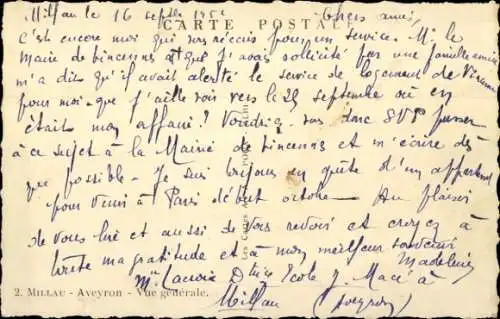 Millau le 16 septbre 195
CARTE POSTALE
Chers amis,
c'est encore moi qui vous récris pour un service. M. le
Maire de Vincennes que j'avais sollicité par une famille amie
m'a dit qu'il avait alerté le service de logement de Vincennes
pour moi - que j'aille voir vers le 25 septembre où en
était mon affaire? Voudriez-vous donc SVP passer
à ce sujet à la Mairie de Vincennes et m'écrire dès
que possible - Je suis toujours en quête d'un appartement
pour venir à Paris début octobre - Au plaisir
de vous lire et aussi de vous revoir et croyez à
toute ma gratitude et à mon meilleur souvenir
Madeleine
Mme Lacroix Dtrice Ecole J. Macé à
Millau (Aveyron)
2. MILLAU - Aveyron - Vue générale.